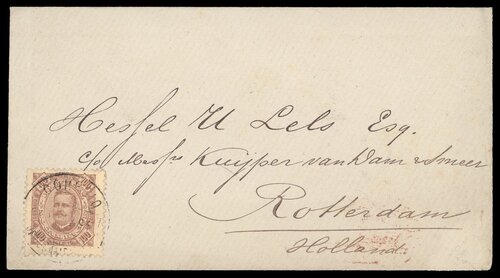 Hessel U Lels Esq.
c/o Messrs Kuijper van Dam & Smeer
Rotterdam
Holland.